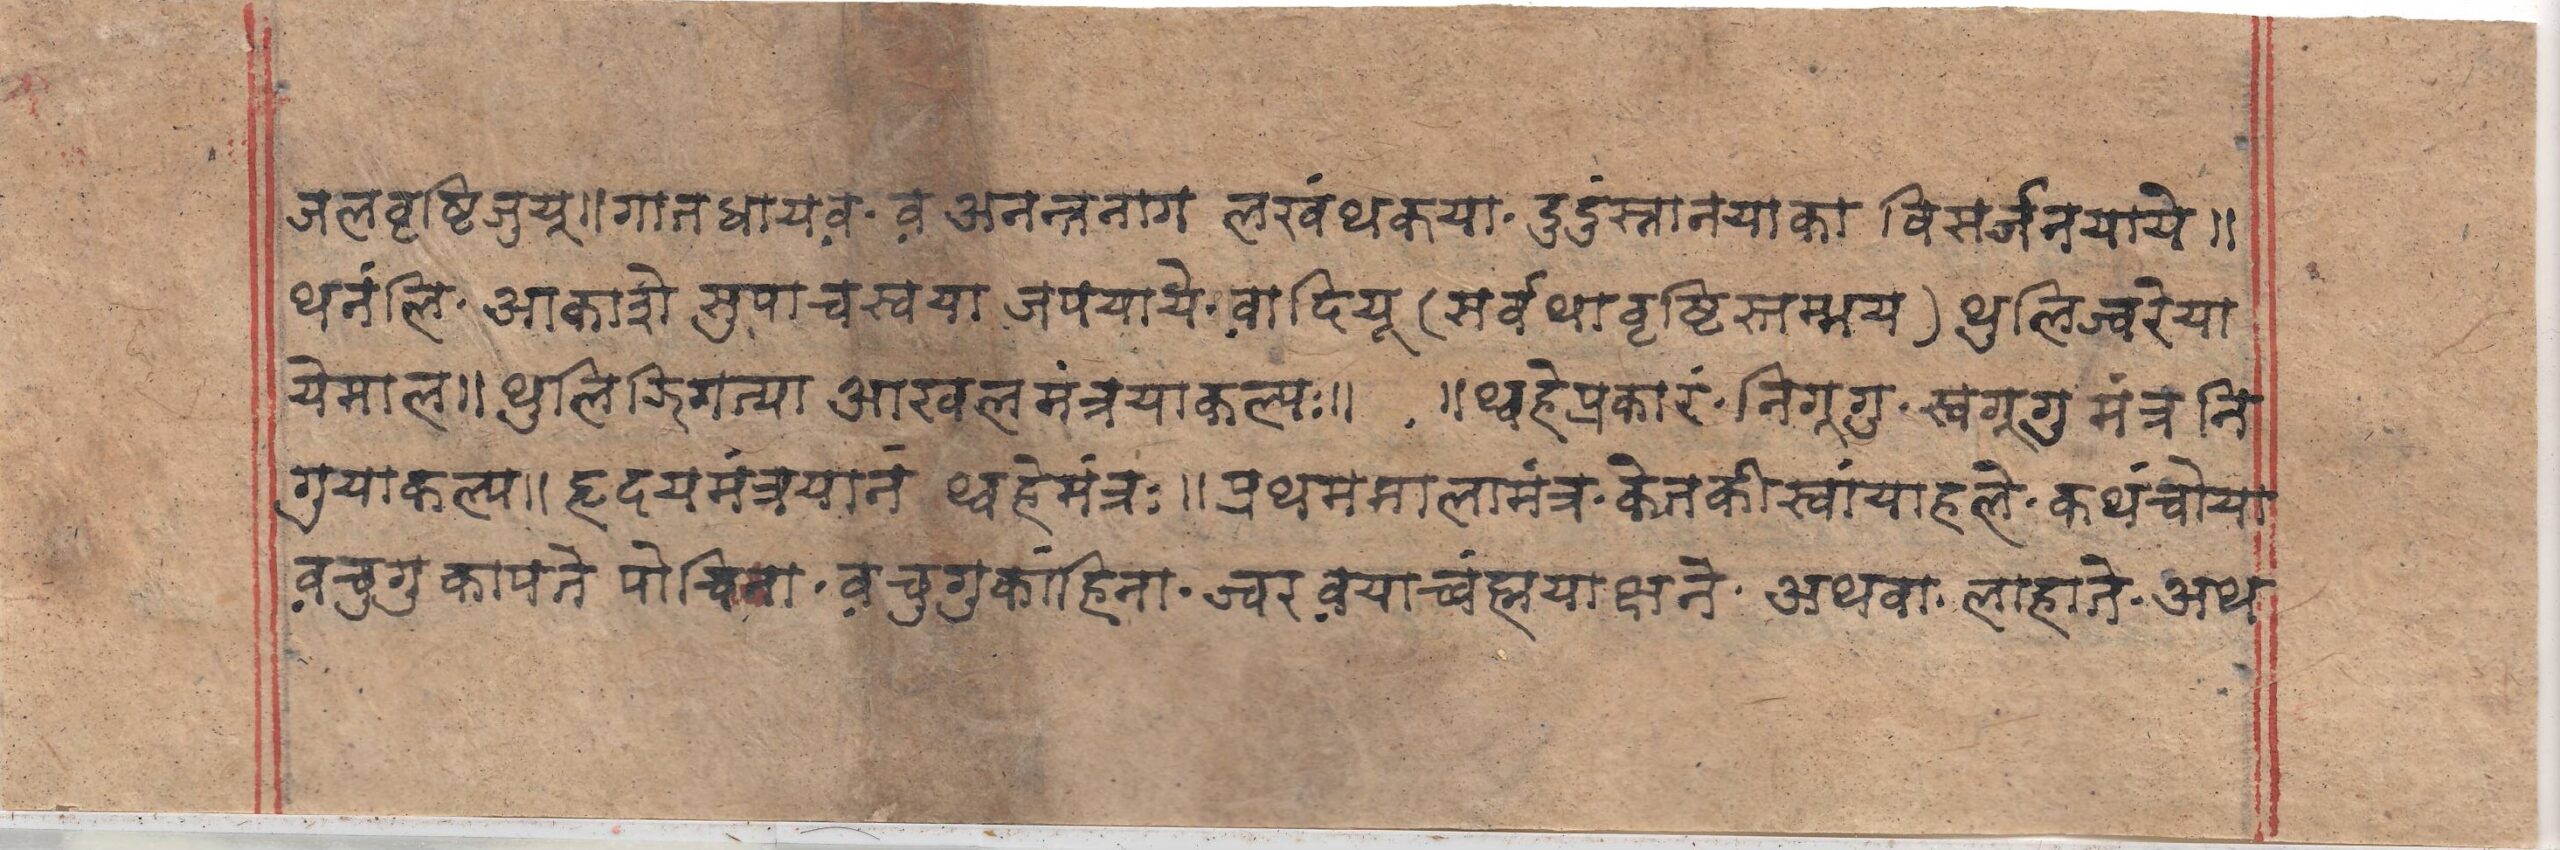 जलवृष्टिजुयू॥गातधायव॰ व अनन्तनाग लखंथकया॰ दुदुंस्नानयाका विसर्जनयाये॥
थनंलि॰ आकाशे सुपाचस्वया जपयाये॰ वादियू (सर्वथावृष्टिस्तम्भय) थुलिज्वरेया
येमाल॥ थुलि आखलमंत्रयाकल्पः॥ ॥थ्वहेप्रकारं॰ निगूगु॰ स्वगूगु मंत्र नि
गुयाकल्प॥ हृदयमंत्रयानं थ्वहेमंत्रः॥ प्रथममालामंत्र॰ केतकीस्वांयाहले॰ कथंचोया
वचुगु कापते पोचिना॰ वचुगुकांहिना॰ ज्वर वयाच्वंह्मया क्षते॰ अथवा॰ लाहाते॰ अथ